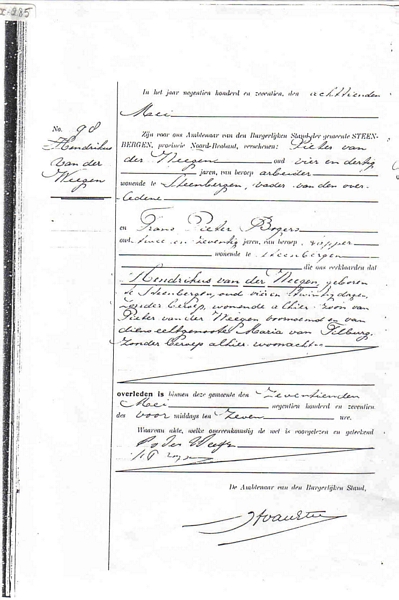 In het jaar negentien honderd en zeventien, den achttienden
Mei
No. 98
Hendrikus
van der
Weegen
Zijn voor ons Ambtenaar van den Burgerlijken Stand der gemeente STEEN-
BERGEN, provincie Noord-Brabant, verschenen: Pieter van
der Weegen oud vier en dertig
jaren, van beroep arbeider
wonende te Steenbergen, vader van den over-
ledene
en Frans Pieter Bogers
oud twee en zeventig jaren, van beroep
wonende te Steenbergen
die ons verklaarden dat
Hendrikus van der Weegen, geboren
te Steenbergen, oud vier en twintig dagen,
zonder beroep, wonende alhier, zoon van
Pieter van der Weegen voornoemd en van
diens echtgenoote Maria van Tilburg,
zonder beroep alhier woonachtig
overleden is binnen deze gemeente den Zeventienden
Mei negentien honderd en zeventien
des voor middags ten Zeven ure.
Waarvan akte, welke overeenkomstig de wet is voorgelezen en geteekend
De Ambtenaar van den Burgerlijken Stand,